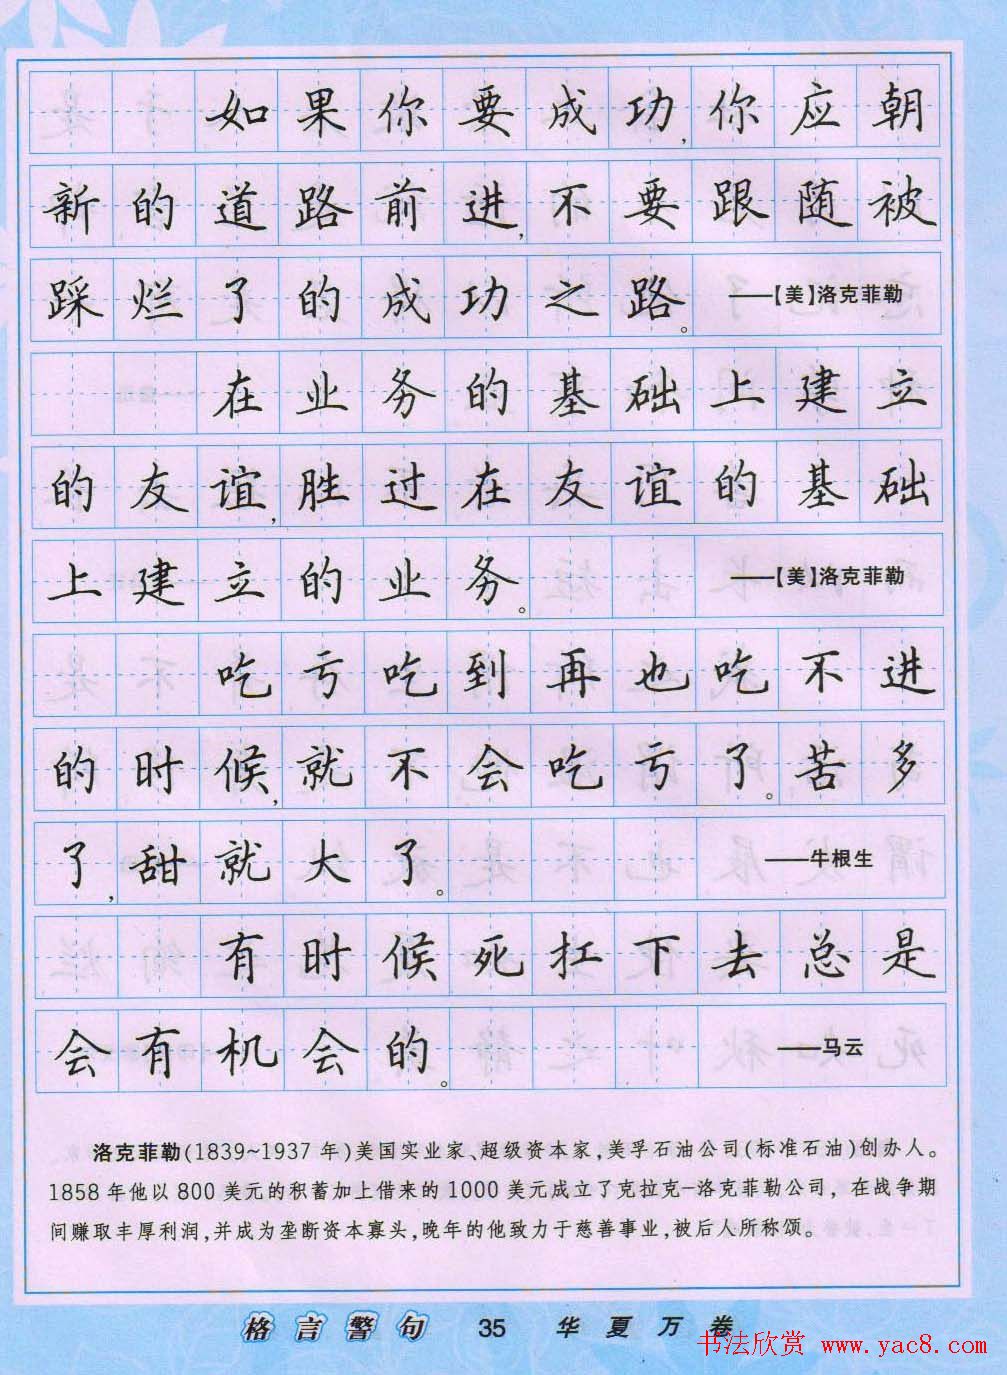 如果你要成功,你应朝
新的道路前进,不要跟随被
踩烂了的成功之路。 ——【美】洛克菲勒
在业务的基础上建立
的友谊,胜过在友谊的基础
上建立的业务。 ——【美】洛克菲勒
吃亏吃到再也吃不进
的时候,就不会吃亏了。苦多
了,甜就大了。 ——牛根生
有时候死扛下去总是
会有机会的。 ——马云
洛克菲勒(1839~1937 年)美国实业家、超级资本家,美孚石油公司(标准石油)创办人。
1858 年他以 800 美元的积蓄加上借来的 1000 美元成立了克拉克-洛克菲勒公司, 在战争期
间赚取丰厚利润,并成为垄断资本寡头,晚年的他致力于慈善事业,被后人所称颂。
格言警句 35 华夏万卷
书法欣赏 www.yac8.com